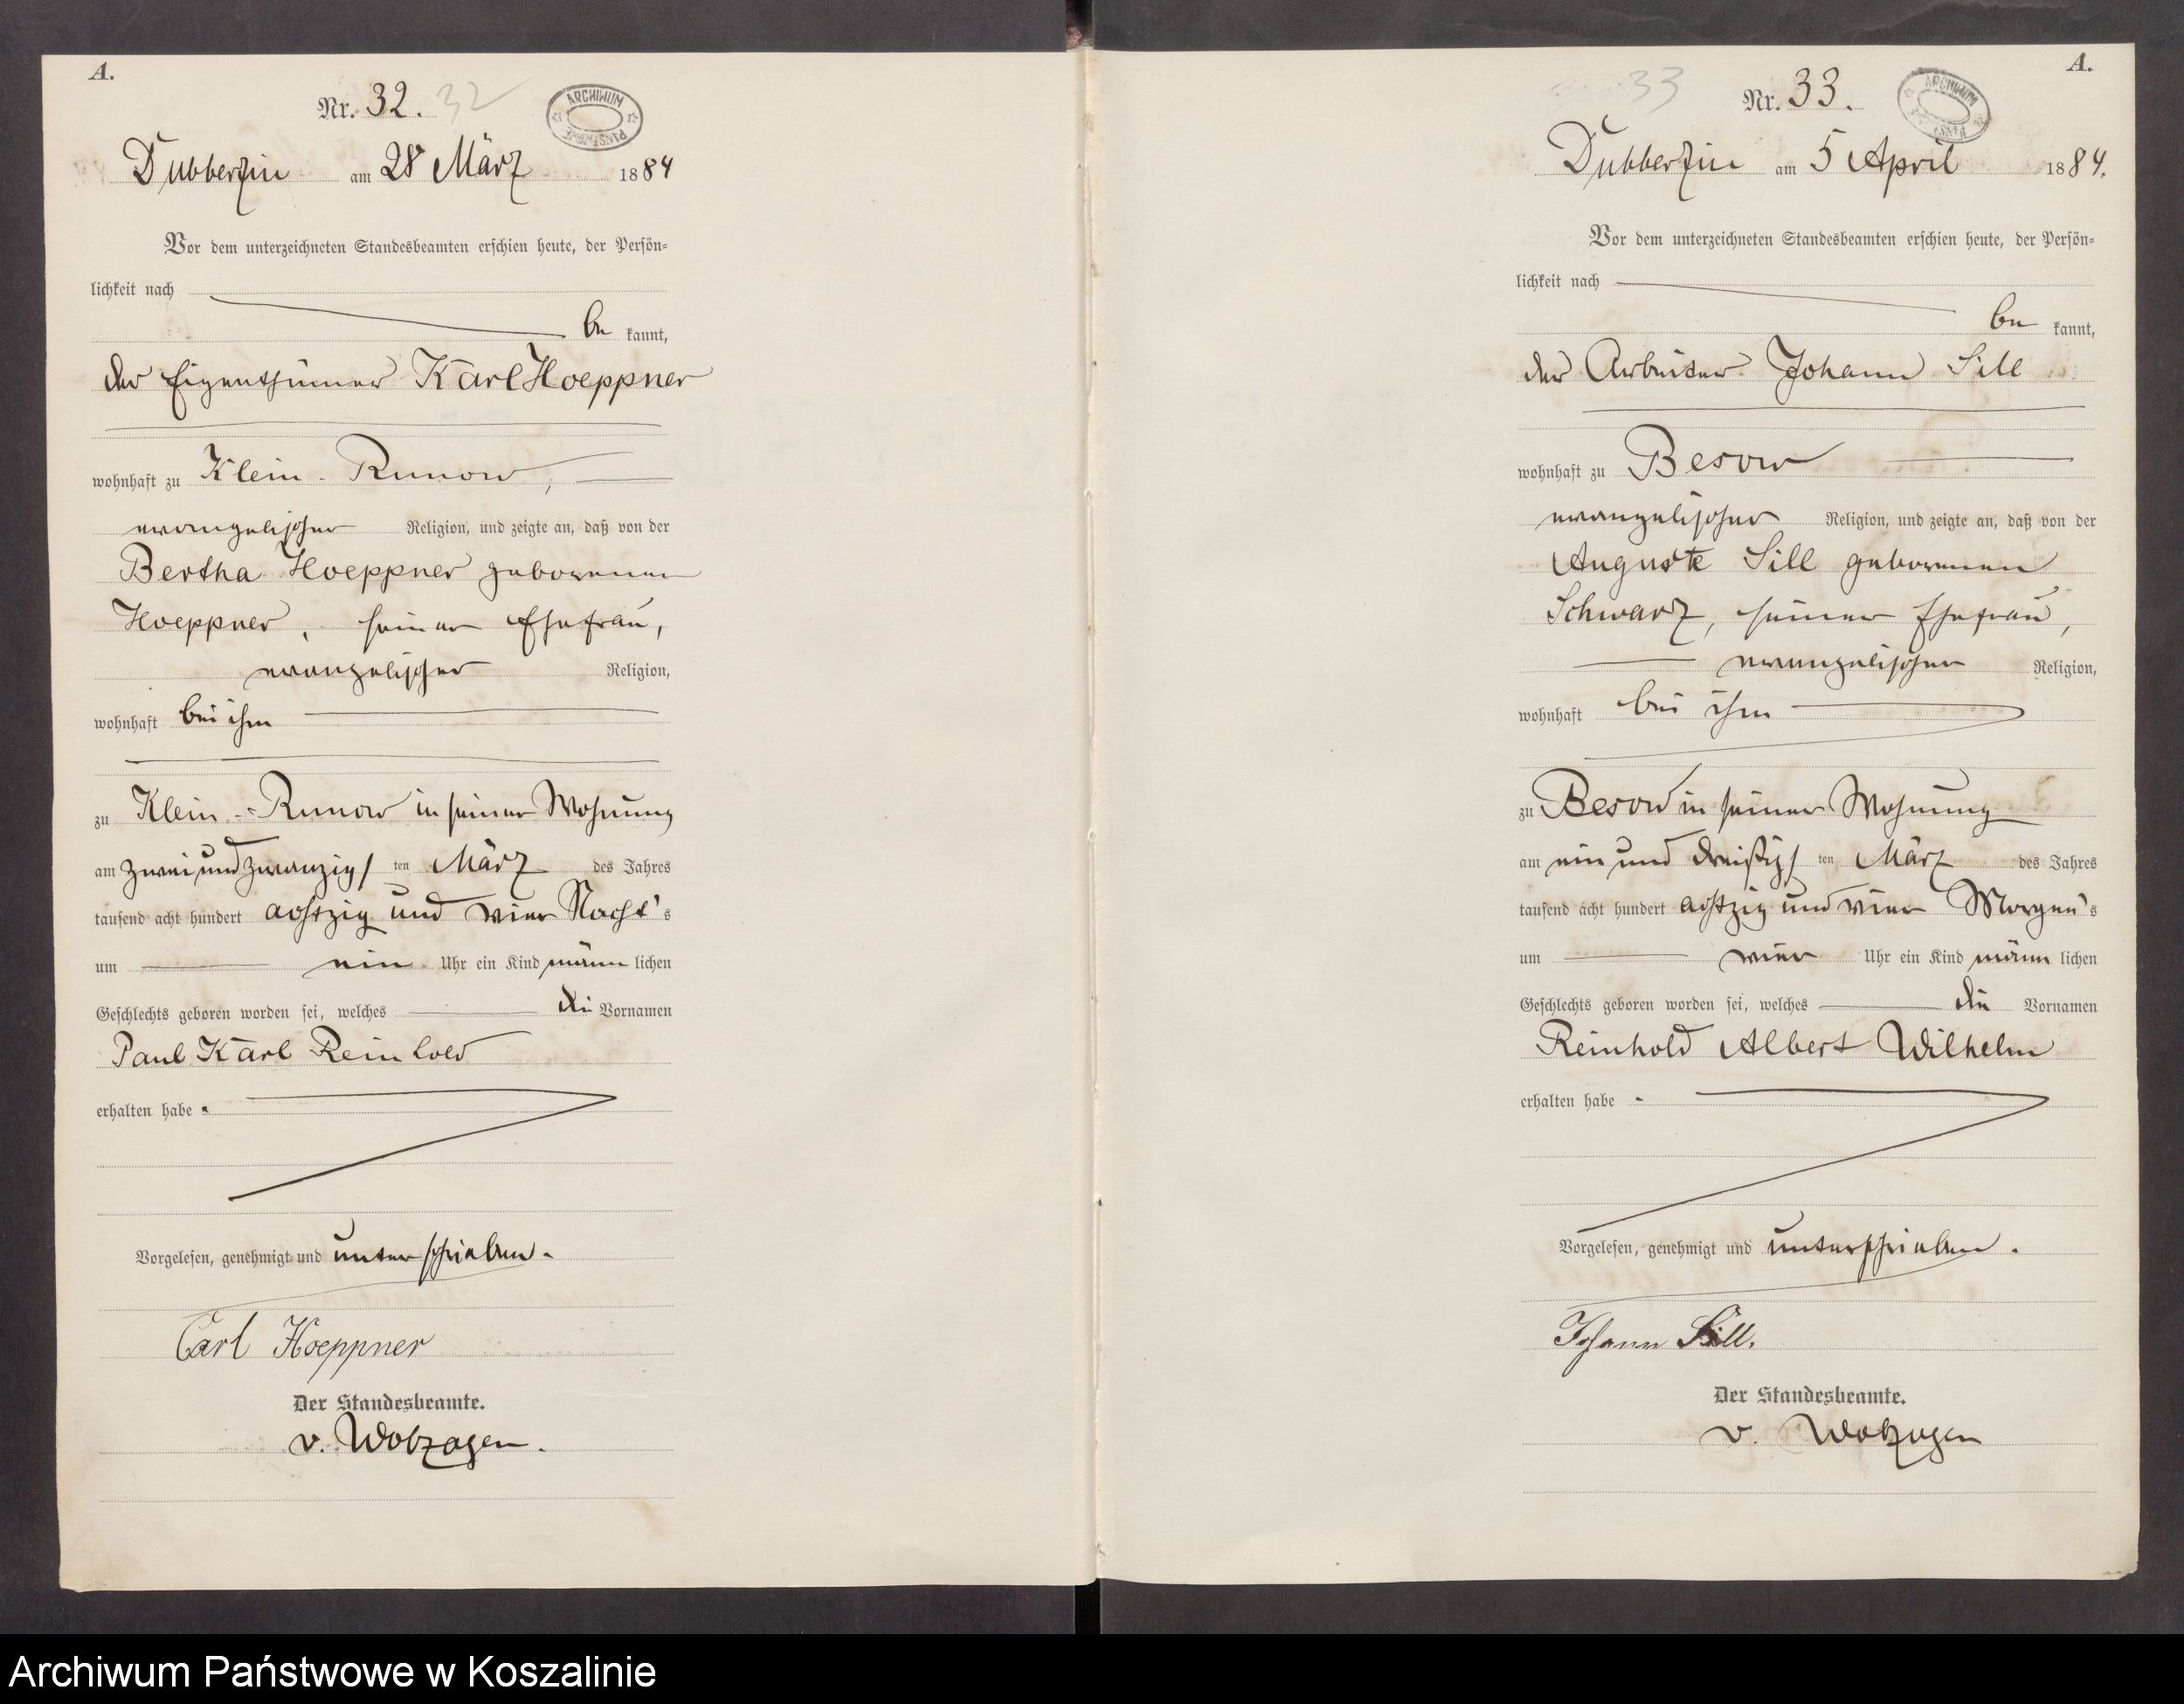 A.
Nr. 32. 32
ARCHIWUM PAŃSTWOWE
Dubberzin am 28 März 1884
Vor dem unterzeichneten Standesbeamten erschien heute, der Persön-
lichkeit nach
be kannt,
der Eigenthümer Karl Hoeppner
wohnhaft zu Klein-Runow,
evangelischer Religion, und zeigte an, daß von der
Bertha Hoeppner geborenen
Hoeppner, seiner Ehefrau,
evangelischer Religion,
wohnhaft bei ihm
zu Klein-Runow in seiner Wohnung
am zwei und zwanzigs ten März des Jahres
tausend acht hundert achtzig und vier Nacht's
um ein Uhr ein Kind männ lichen
Geschlechts geboren worden sei, welches die Vornamen
Paul Karl Reinhold
erhalten habe.
Vorgelesen, genehmigt und unterschrieben.
Carl Hoeppner
Der Standesbeamte.
v. Wolzogen.
A.
33 Nr. 33.
ARCHIWUM
Dubberzin am 5 April 1884.
Vor dem unterzeichneten Standesbeamten erschien heute, der Persön-
lichkeit nach
be kannt,
der Arbeiter Johann Sill
wohnhaft zu Besow
evangelischer Religion, und zeigte an, daß von der
Auguste Sill geborenen
Schwarz, seiner Ehefrau,
evangelischer Religion,
wohnhaft bei ihm
zu Besow in seiner Wohnung
am ein und dreißigs ten März des Jahres
tausend acht hundert achtzig und vier Morgen's
um vier Uhr ein Kind männ lichen
Geschlechts geboren worden sei, welches die Vornamen
Reinhold Albert Wilhelm
erhalten habe.
Vorgelesen, genehmigt und unterschrieben.
Johann Sill.
Der Standesbeamte.
v. Wolzogen
Archiwum Państwowe w Koszalinie